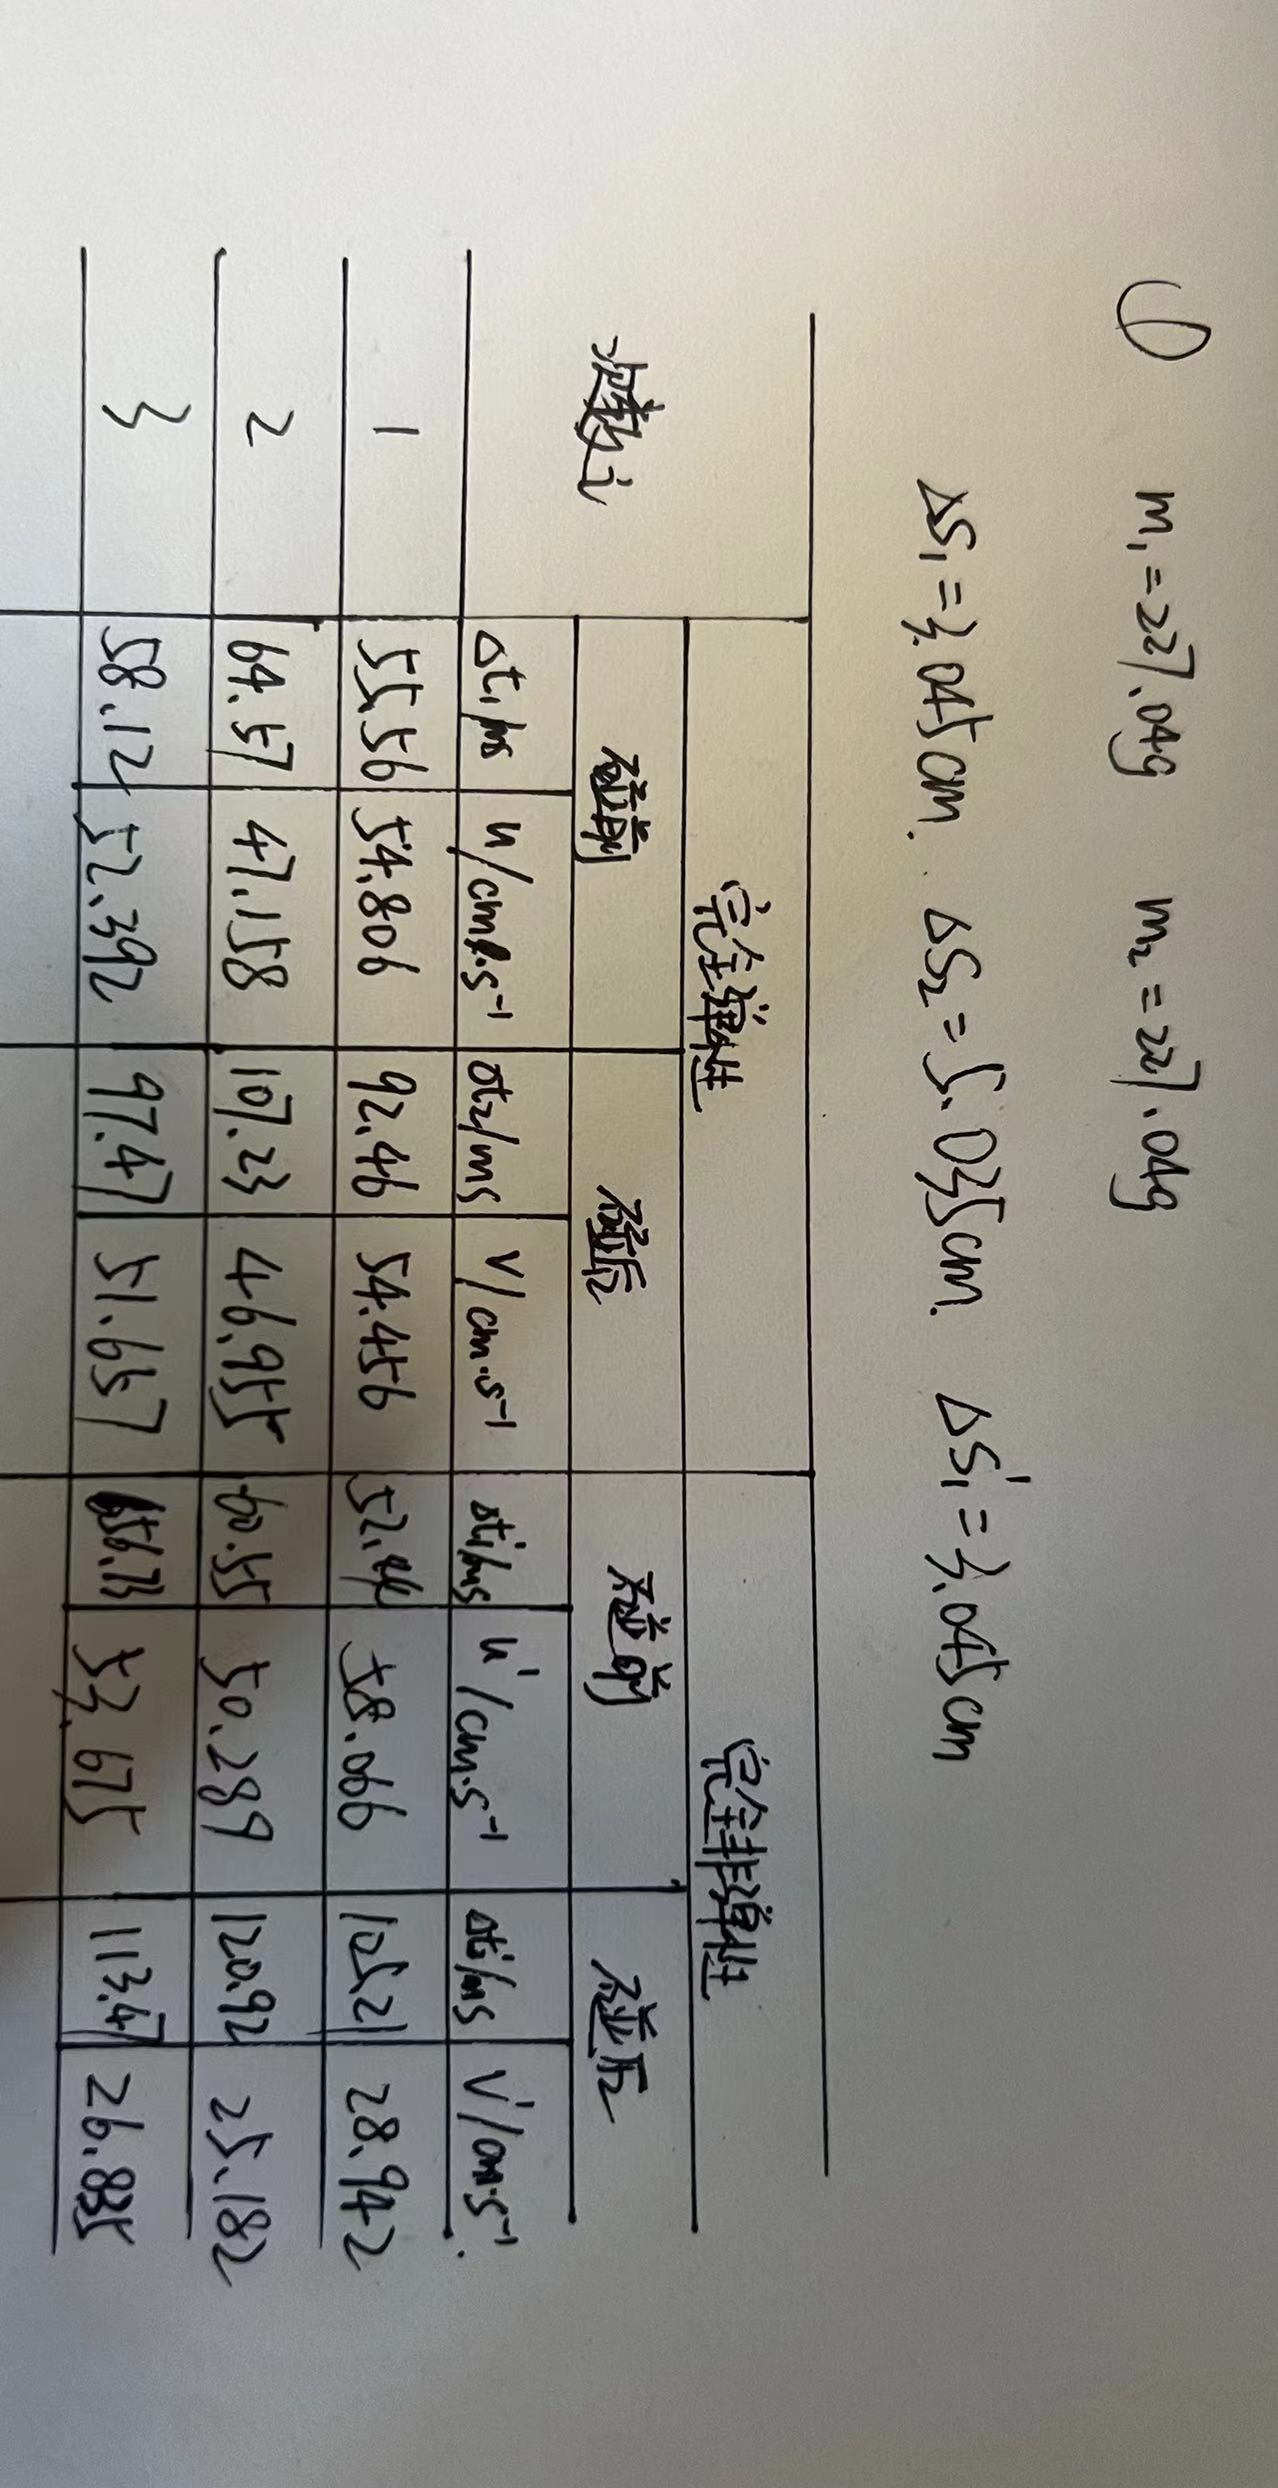 (1) m₁=227.04g m₂=227.04g
ΔS₁=3.045cm. ΔS₂=5.035cm. ΔS₁'=3.045cm
完全弹性 完全非弹性
次数i 碰前 碰后 碰前 碰后
Δt₁/ms u/cm·s⁻¹ Δt₂/ms v/cm·s⁻¹ Δt₁'/ms u'/cm·s⁻¹ Δt₂'/ms v'/cm·s⁻¹
1 55.56 54.806 92.46 54.456 52.44 58.066 105.21 28.942
2 64.57 47.158 107.23 46.955 60.55 50.289 120.92 25.182
3 58.12 52.392 97.47 51.657 56.73 53.675 113.47 26.835